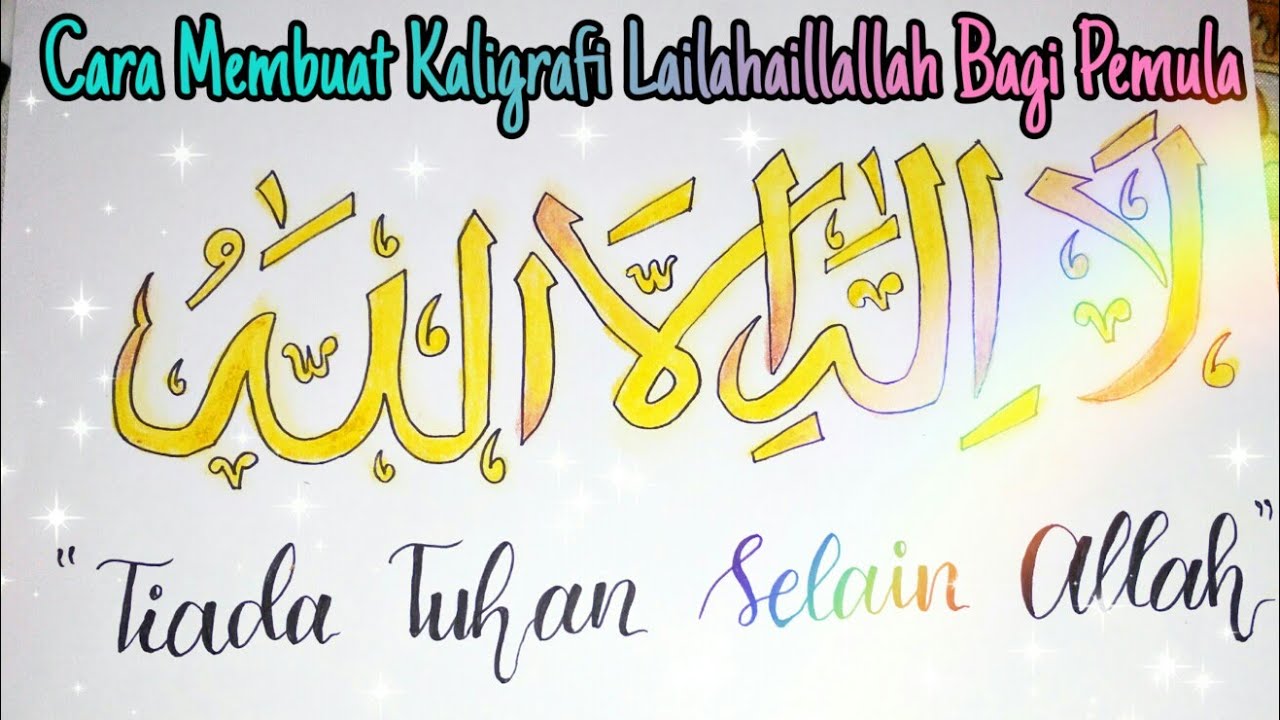 Cara Membuat Kaligrafi Lailahaillallah Bagi Pemula
لَا إِلٰهَ إِلَّا اللّٰهُ
"Tiada Tuhan Selain Allah"